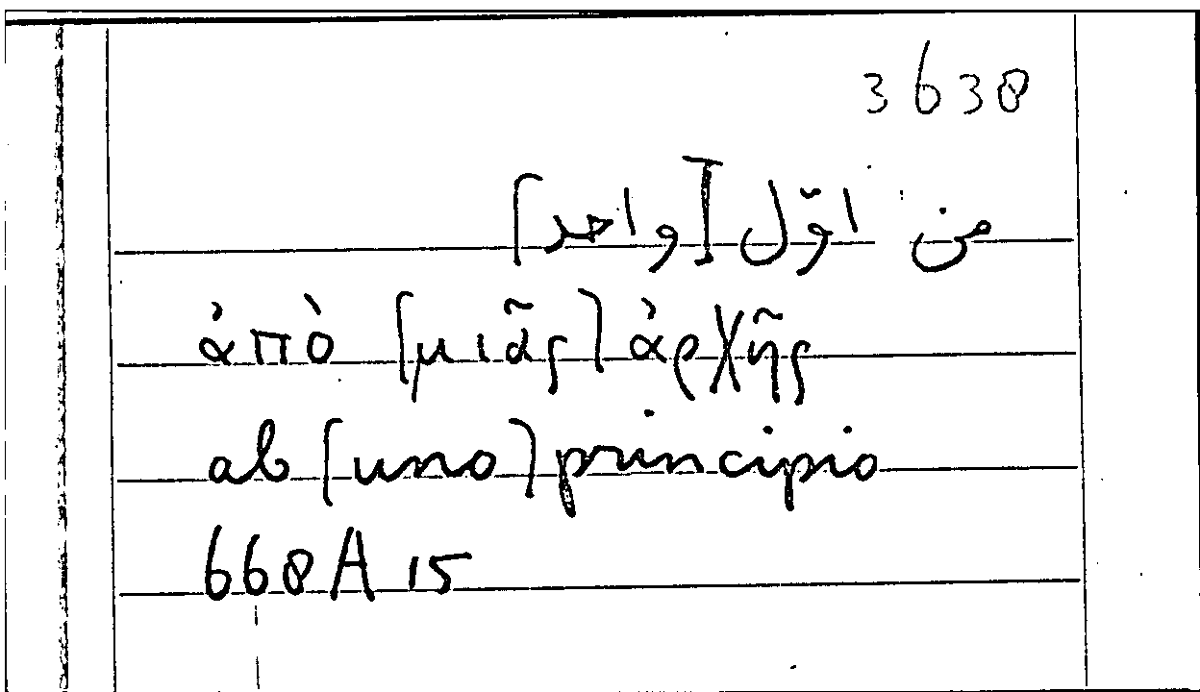 3638
من اوّل [واحد]
ἀπὸ [μιᾶς] ἀρχῆς
ab [uno] principio
668A 15